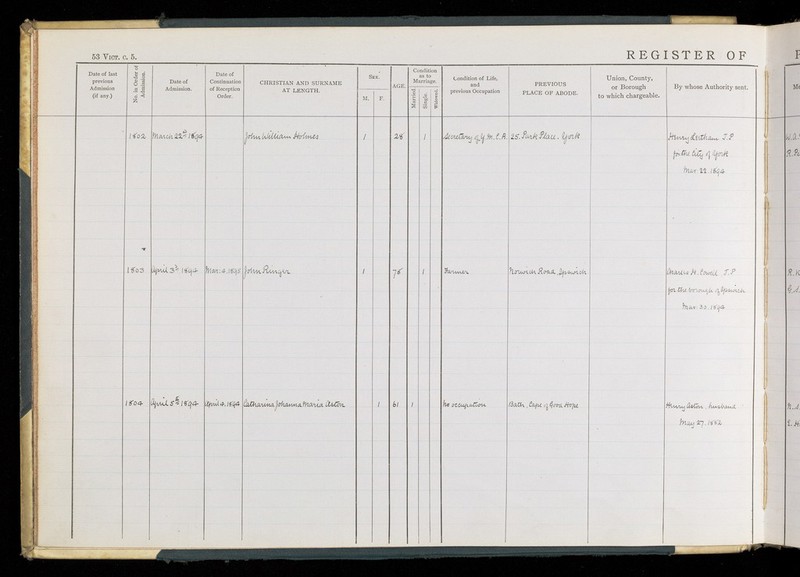 53 VICT. c. 5.
REGISTER OF
Date of last previous Admission (if any.)
No. in Order of Admission.
Date of Admission.
Date of Continuation of Reception Order.
CHRISTIAN AND SURNAME AT LENGTH.
SEX.
M. F.
AGE.
Condition as to Marriage.
Married. Single. Widowed.
Condition of Life, and previous Occupation
PREVIOUS PLACE OF ABODE.
Union, County, or Borough to which chargeable.
By whose Authority sent.
1802 March 22nd 1894 John William Holmes 1 28 1 Secretary of Y.M.C.A. 25. Park Place. York Henry J.P.
for the City of York
Mar: 22. 1894
1803 April 3rd 1894 John Ringer 1 1 Farmer Norwich Road. Ipswich Charles H. J.P.
for the Borough of Ipswich
Mar: 1894
1804 April 5th 1894 April 4. 1894 Catharina Johanna Maria Aston 1 61 1 No occupation Cape of Good Hope Henry Aston. husband
May 27. 1882